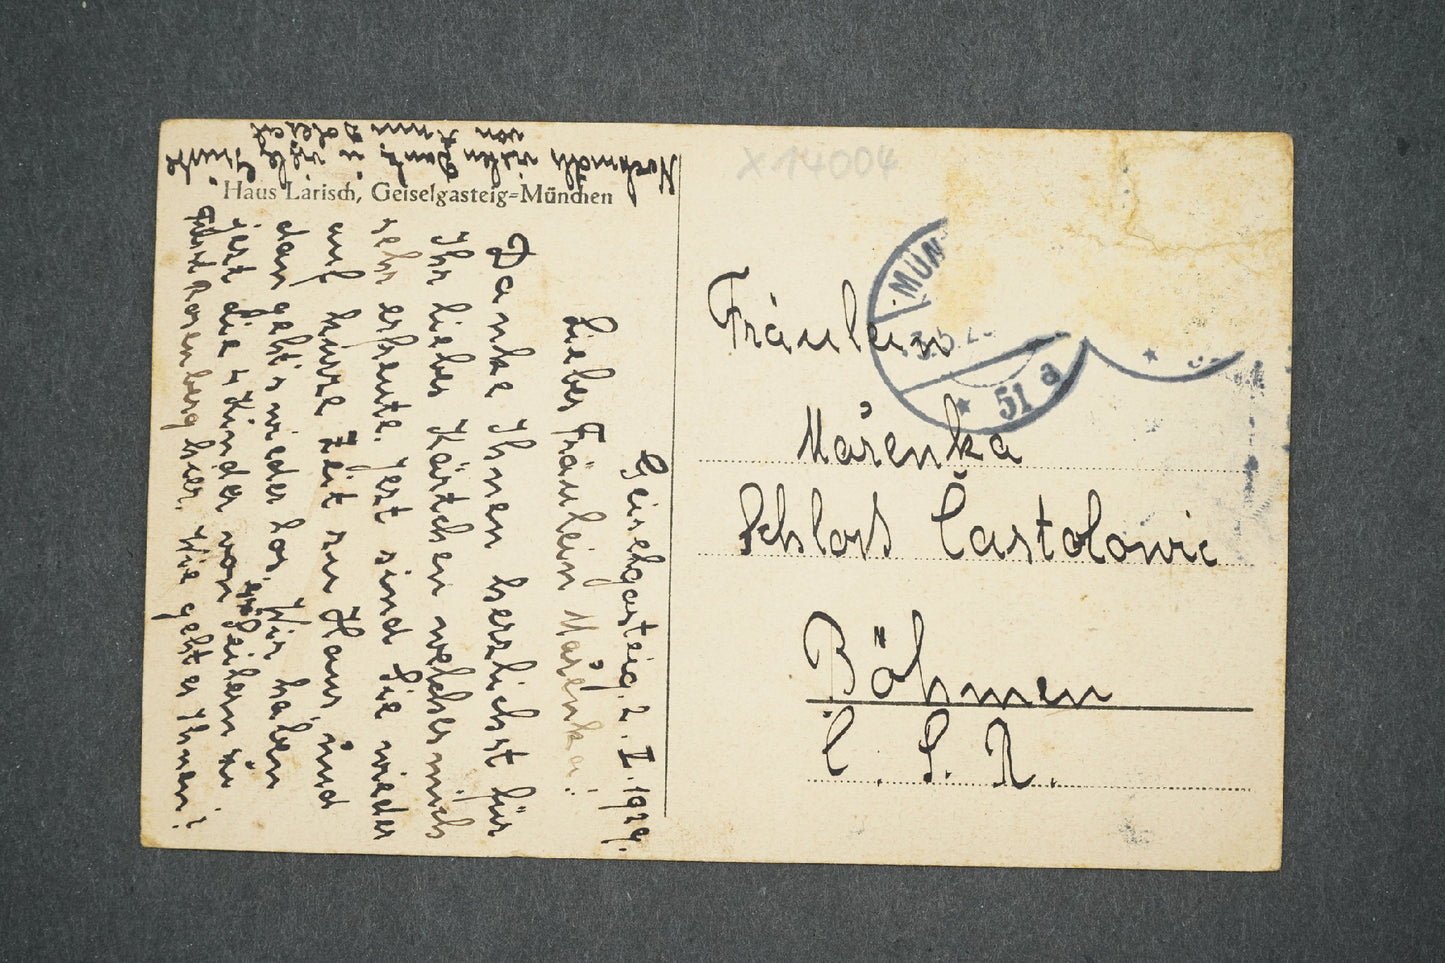 Haus Larisch, Geiselgasteig=München
Geiselgasteig. 2. I. 1929.
Liebes Fräulein Mařenka!
Danke Ihnen herzlichst für
Ihr liebes Kärtchen welches mich
sehr erfreute. Jezt sind Sie wieder
auf kurze Zeit zu Haus, und
dan geht's wieder los. Wir haben
jezt die 4 Kinder von
Fürst Rosenberg hier. Wie geht es Ihnen?
Nochmals vielen Dank, u viele Grüsse
von Anna
X14004
MÜN
51 a
Fräulein
Mařenka
Schloss Častolowic
Böhmen
Č. S. R.